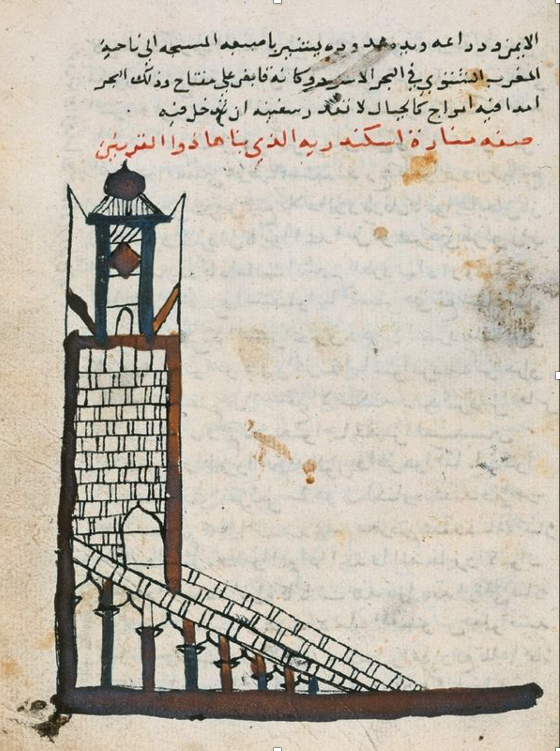 الايمن وذراعه ويده ممدوده يشير باصبعه المسبحه الى ناحية
المغرب الشتوي في البحر الاسود وكانه قابض على مفتاح وذلك البحر
ابدا فيه امواج كالجبال لا تقدر سفينه ان تدخل فيه
صفه منارة اسكندريه الذي بناها ذوا القرنين